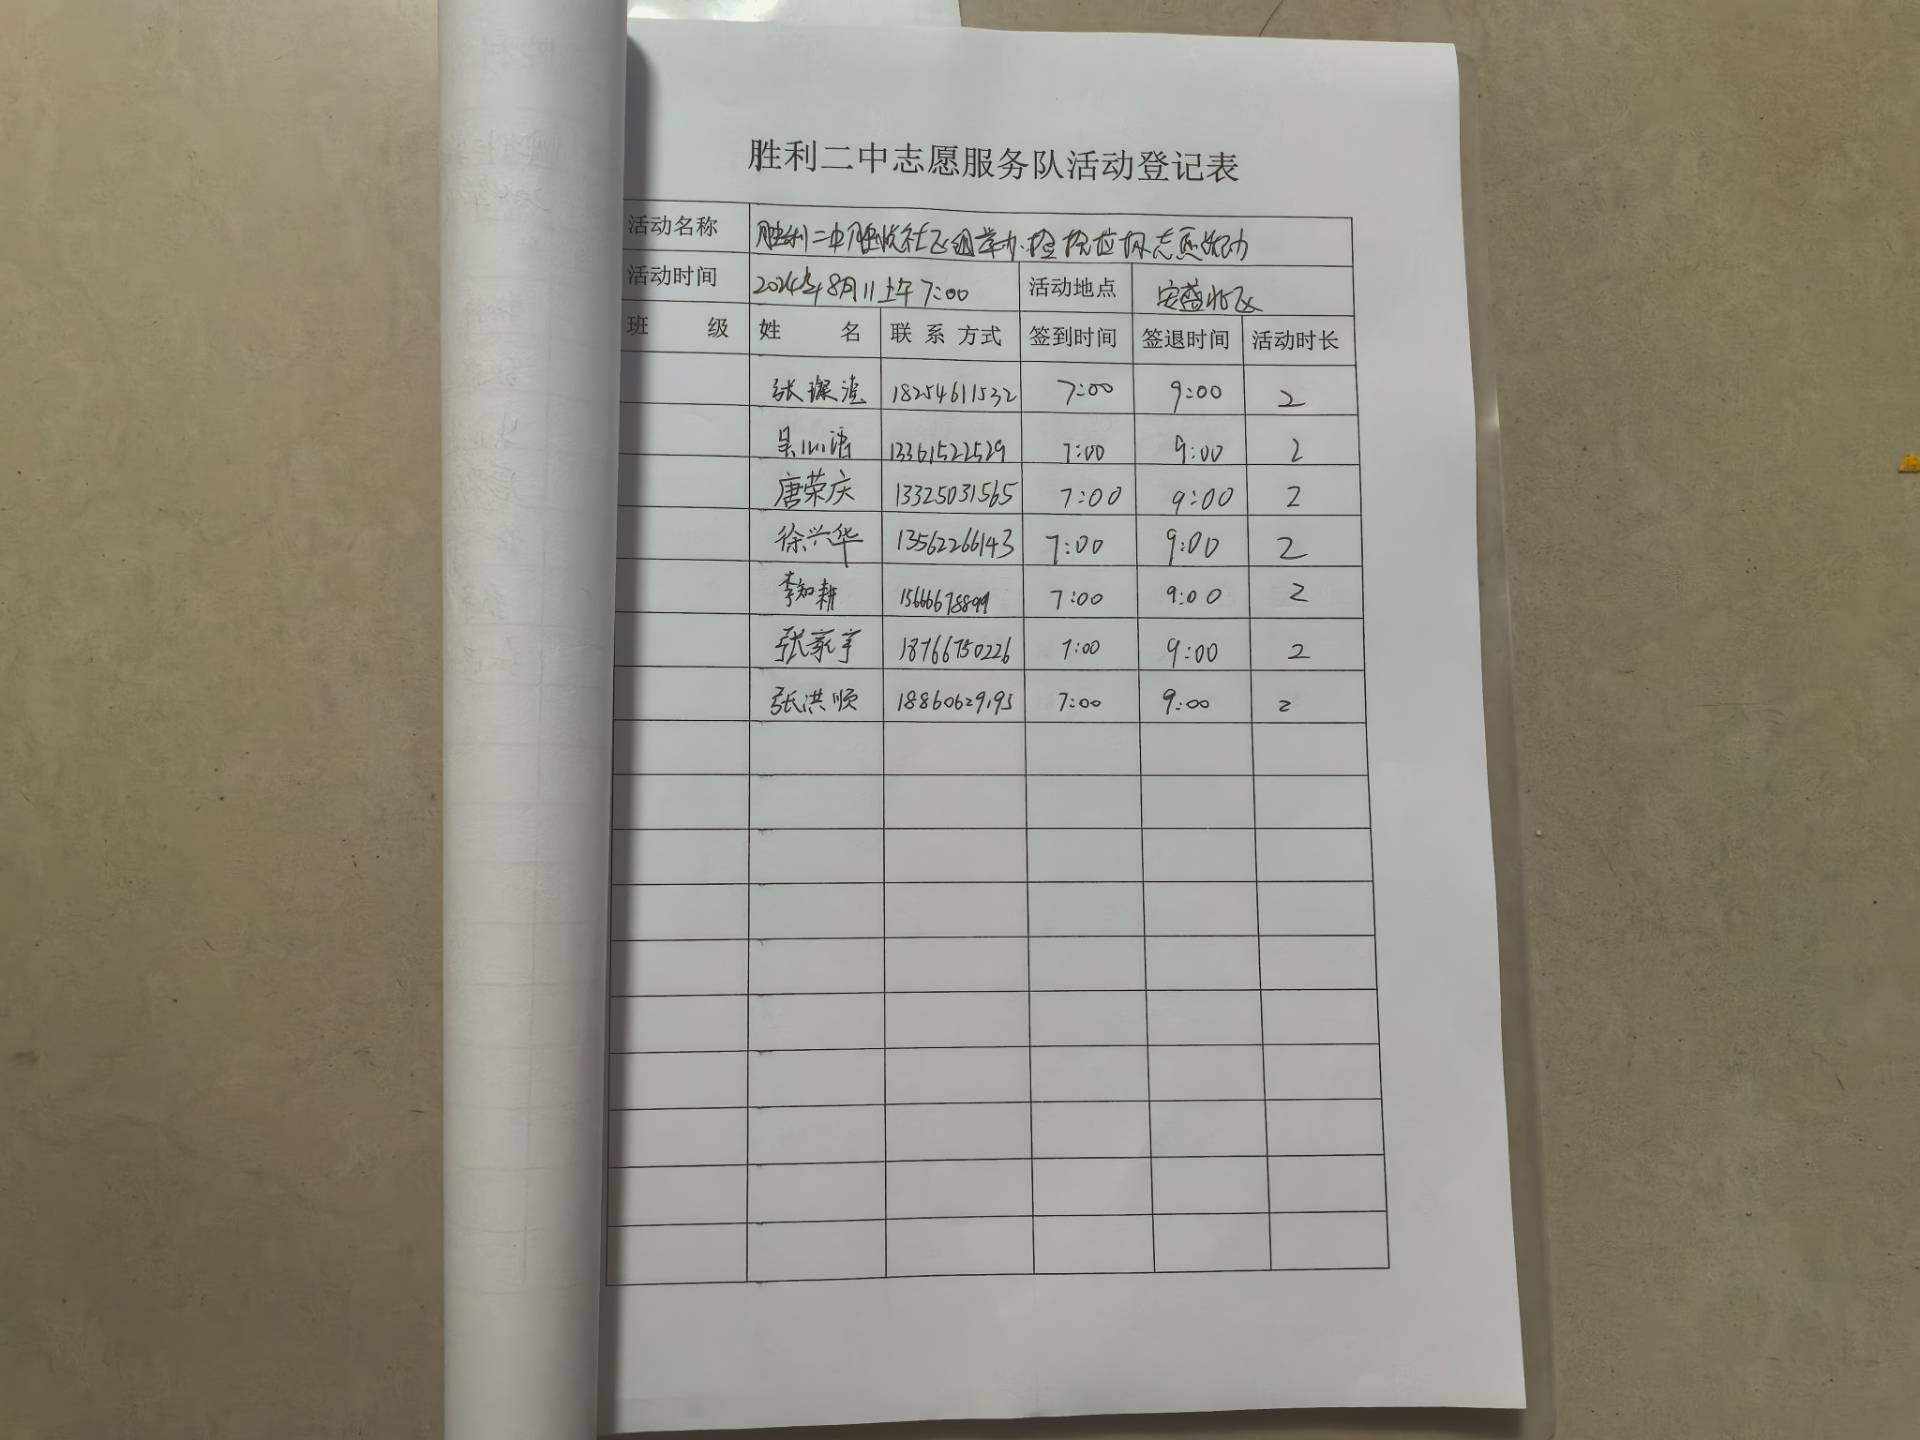 胜利二中志愿服务队活动登记表
活动名称 胜利二中胜悦社区组举办捡捡垃圾志愿活动
活动时间 2024年8月11上午7:00 活动地点 安盛北区
班 级 姓 名 联 系 方式 签到时间 签退时间 活动时长
张璨滢 18254611532 7:00 9:00 2
吴沁语 13361522529 7:00 9:00 2
唐荣庆 13325031565 7:00 9:00 2
徐兴华 13562266143 7:00 9:00 2
李知耕 15666678899 7:00 9:00 2
张家宇 18766750226 7:00 9:00 2
张洪顺 7:00 9:00 2